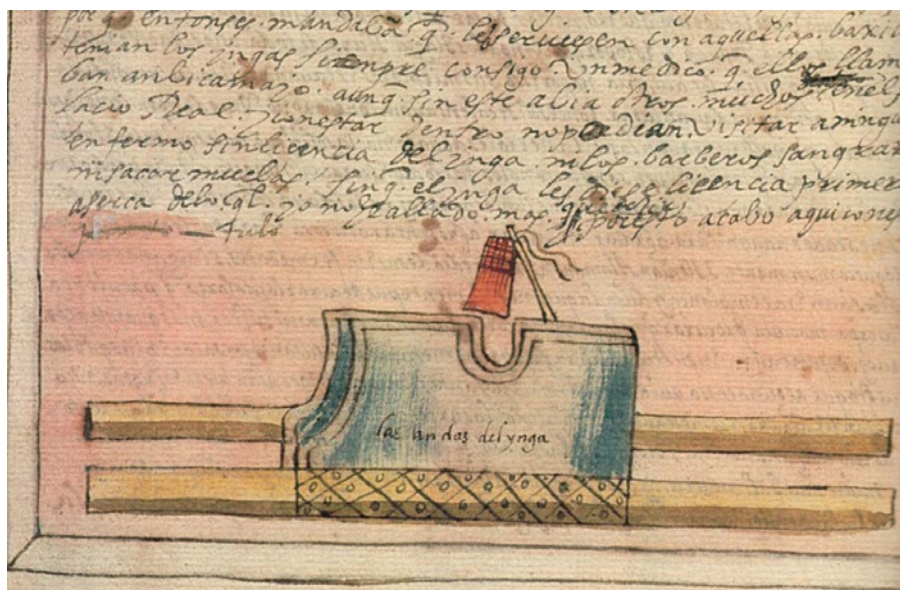 entonses. mandaba q̃. le serviesen con aquellas. baxill
tenian los yngas siempre consigo. un medico. q̃ ellos llam
ban anbicamajo. aunq̃ sin este abia otros. muchos en el
lacio Real. y con estar dentro no podian. visitar a ningu
enfermo sin licencia del ynga ni los. barberos sangrar
ni sacar muelas. sin q̃. el ynga les diese licencia primer
aserca de lo ql. yo no e allado. mas. y por esto acabo aqui con es
las andas del ynga